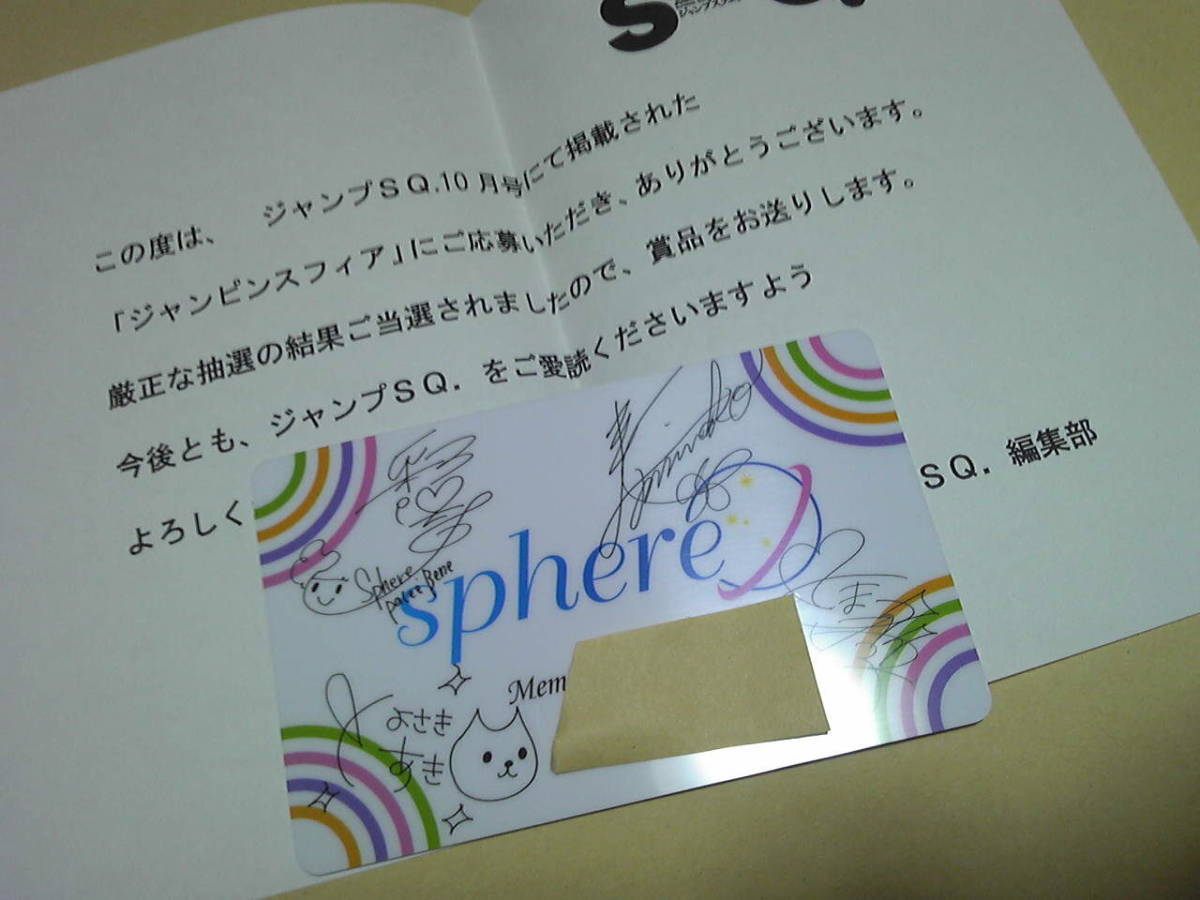 SQ
ジャンプスクエア
この度は、 ジャンプSQ.10月号にて掲載された
「ジャンピンスフィア」にご応募いただき、ありがとうございます。
厳正な抽選の結果ご当選されましたので、賞品をお送りします。
今後とも、ジャンプSQ. をご愛読くださいますよう
よろしく
SQ. 編集部
彩
Minako
Sphere
sphere
Mem
よさき
すき